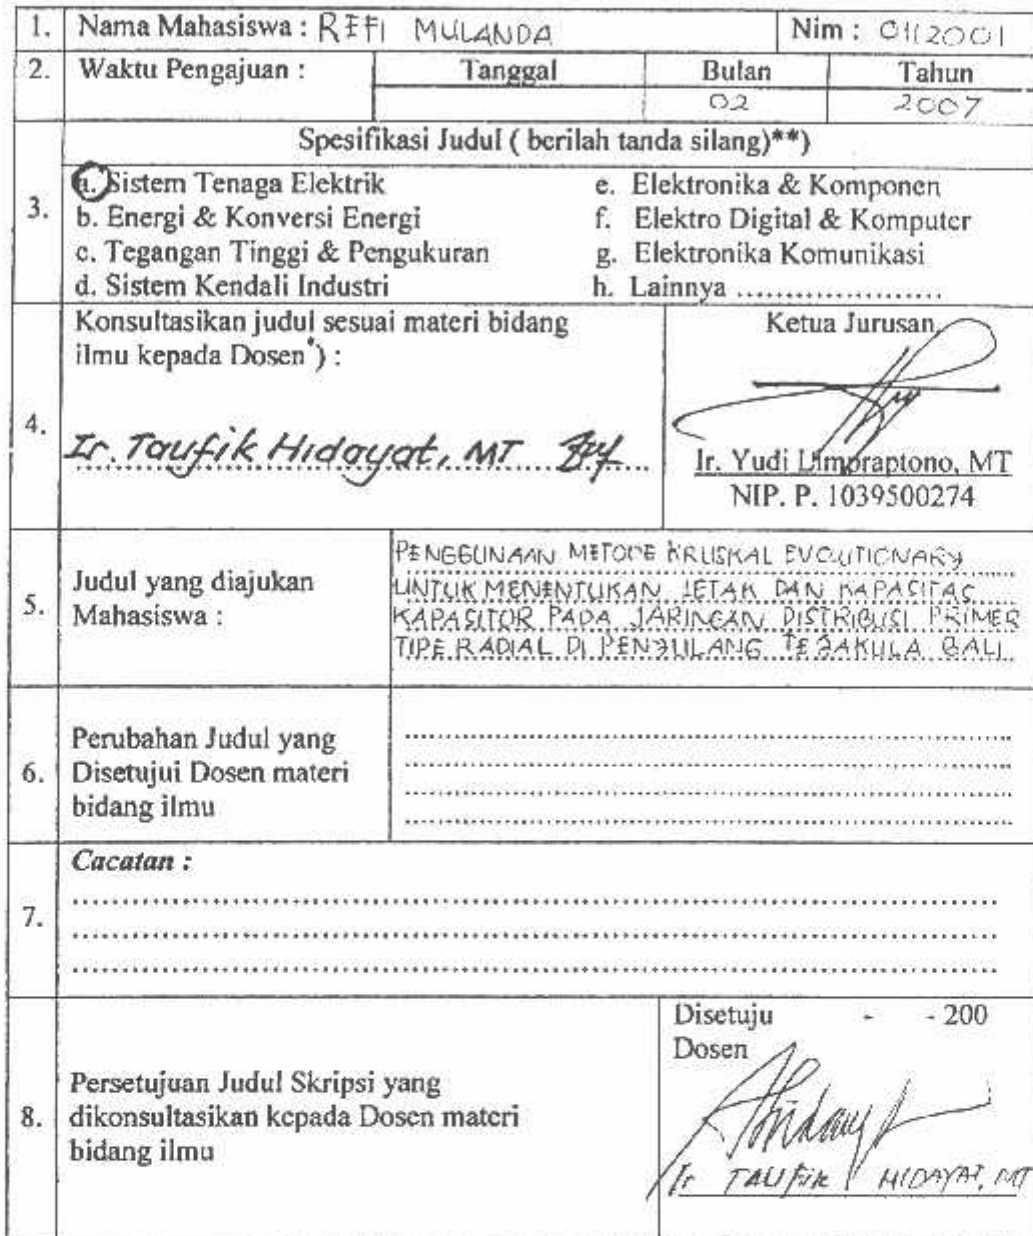 1. Nama Mahasiswa : REFI MULANDA Nim : 0112001
2. Waktu Pengajuan : Tanggal Bulan Tahun
02 2007
Spesifikasi Judul ( berilah tanda silang)**)
3.
a. Sistem Tenaga Elektrik
b. Energi & Konversi Energi
c. Tegangan Tinggi & Pengukuran
d. Sistem Kendali Industri
e. Elektronika & Komponen
f. Elektro Digital & Komputer
g. Elektronika Komunikasi
h. Lainnya .....................
4.
Konsultasikan judul sesuai materi bidang
ilmu kepada Dosen*) :
Ir. Taufik Hidayat, MT
Ketua Jurusan,
Ir. Yudi Limpraptono, MT
NIP. P. 1039500274
5.
Judul yang diajukan
Mahasiswa :
PENGGUNAAN METODE KRUSKAL EVOLUTIONARY
UNTUK MENENTUKAN LETAK DAN KAPASITAS
KAPASITOR PADA JARINGAN DISTRIBUSI PRIMER
TIPE RADIAL DI PENYULANG TEJAKULA BALI
6.
Perubahan Judul yang
Disetujui Dosen materi
bidang ilmu
Cacatan :
7.
8.
Persetujuan Judul Skripsi yang
dikonsultasikan kepada Dosen materi
bidang ilmu
Disetuju - - 200
Dosen
Ir TAUFIK HIDAYAT, MT